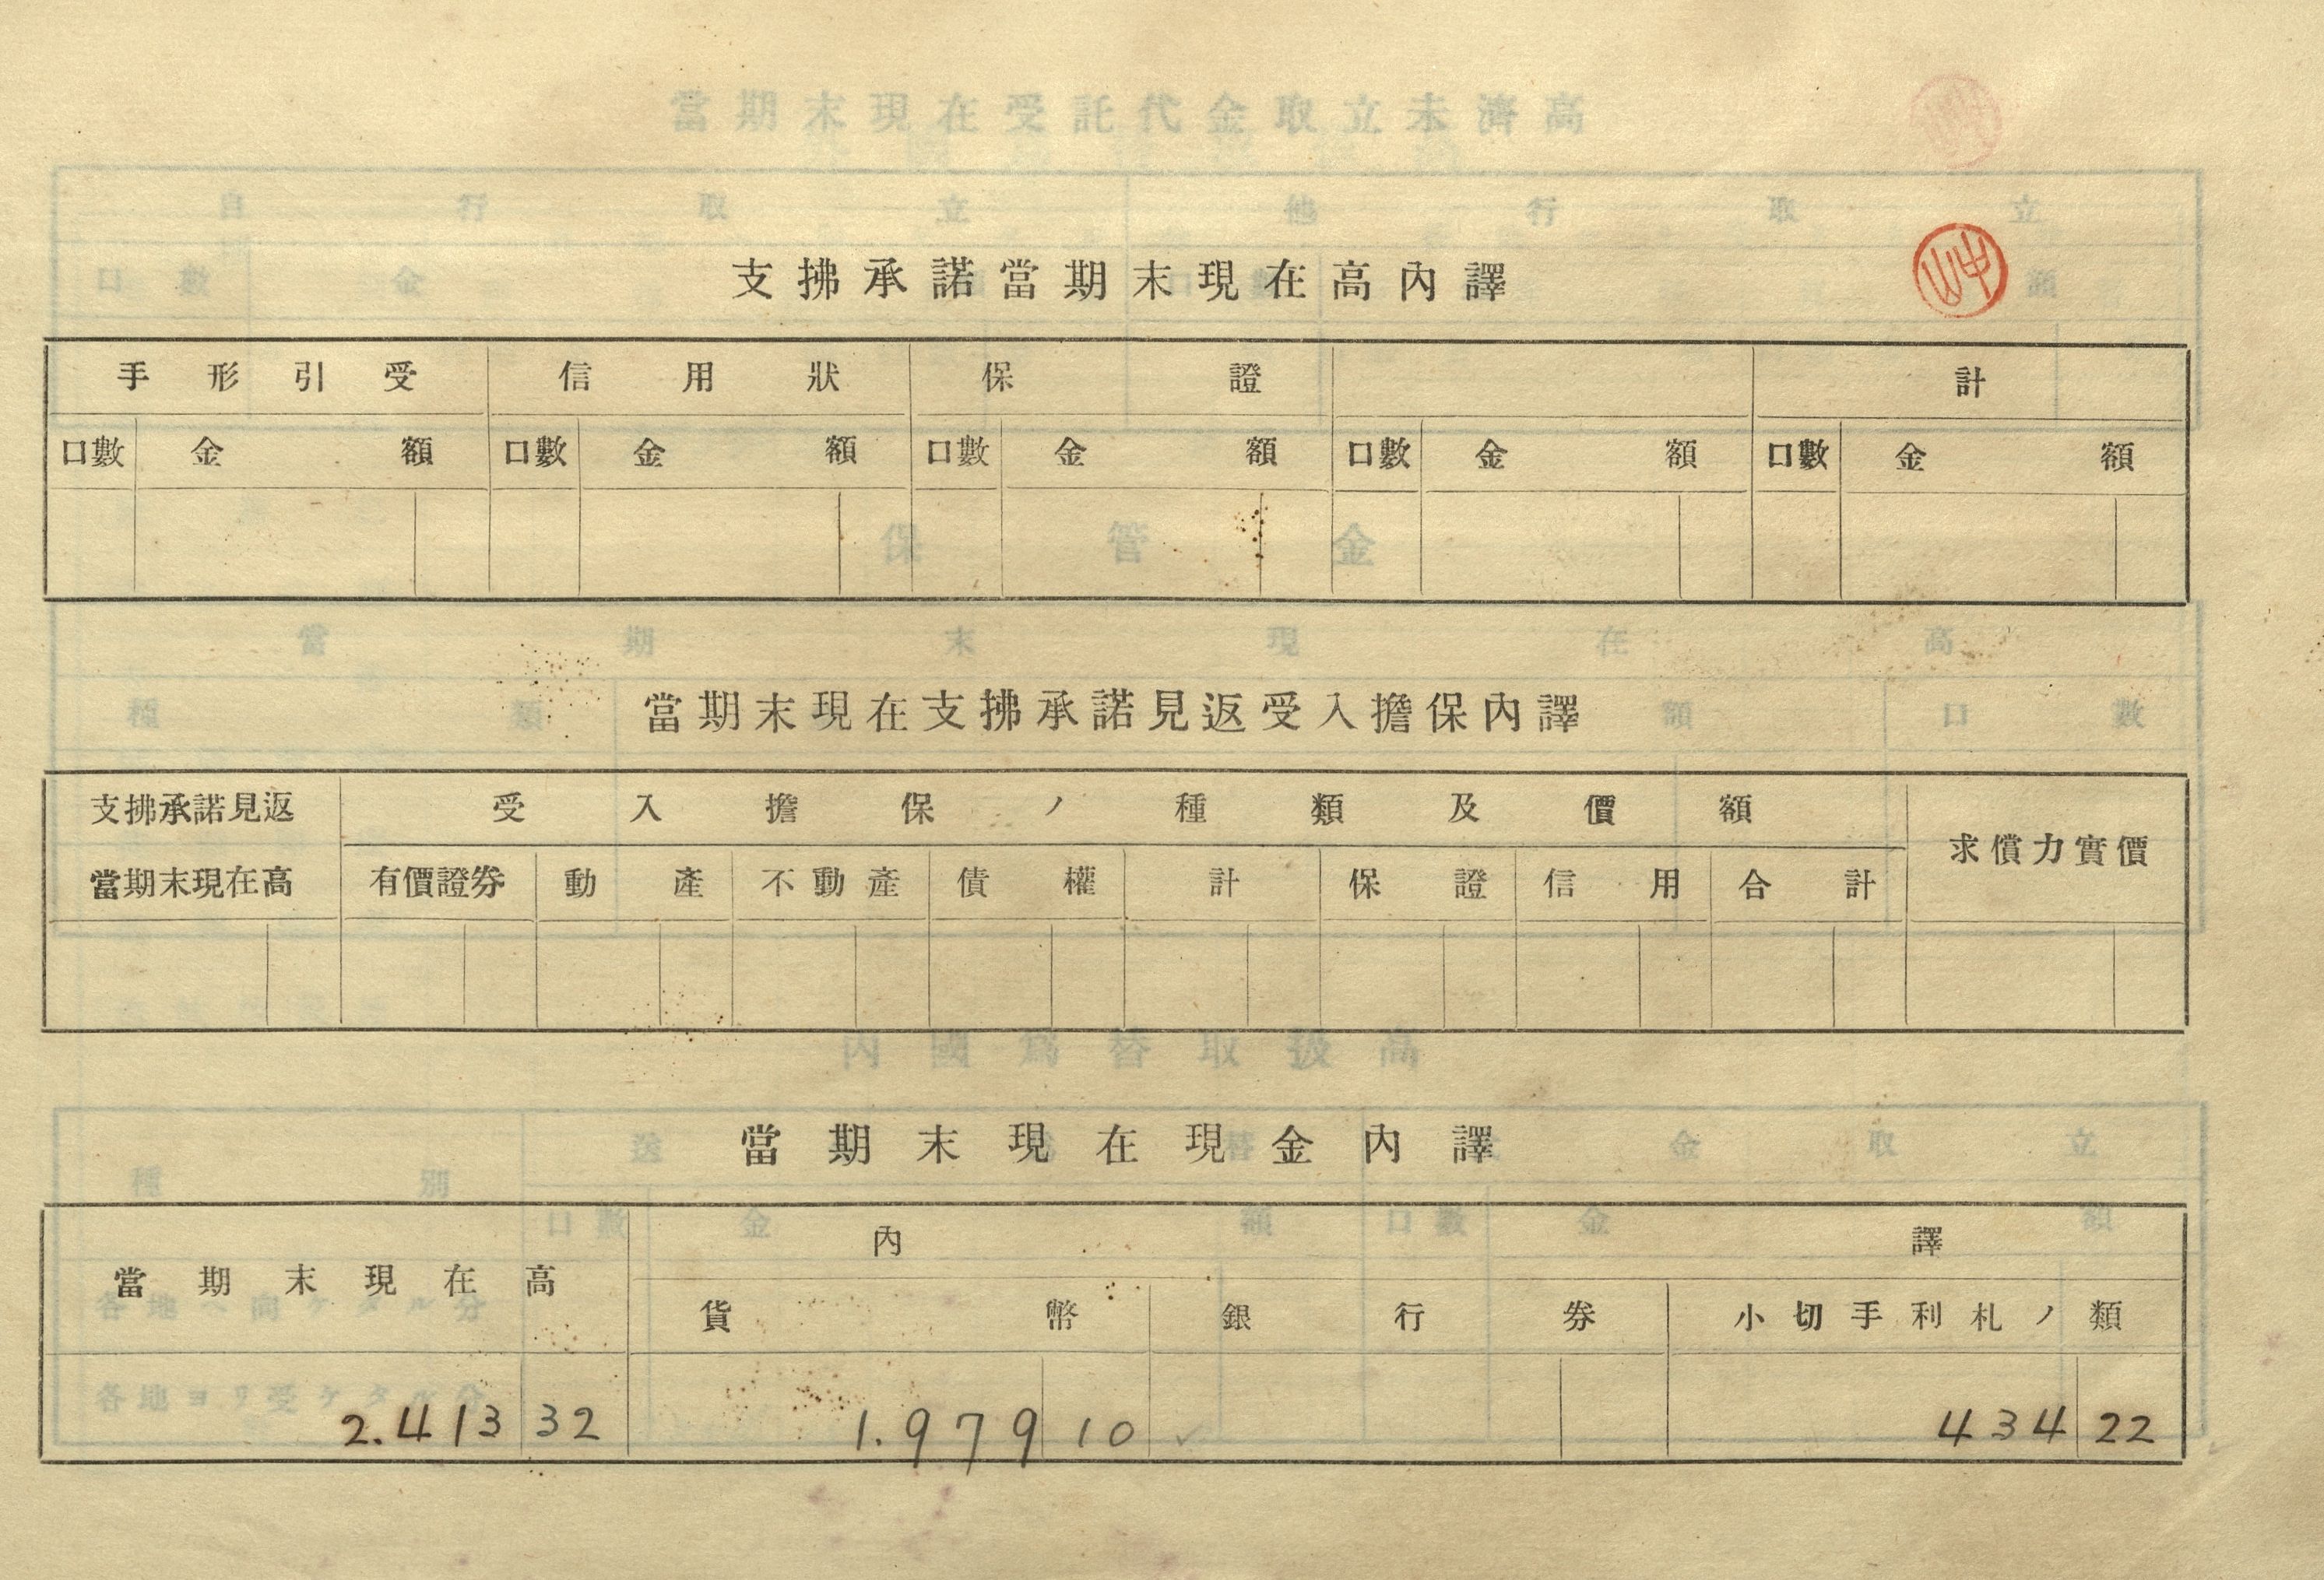 支拂承諾當期末現在高內譯
手形引受 信用狀 保證 計
口數 金額 口數 金額 口數 金額 口數 金額 口數 金額
當期末現在支拂承諾見返受入擔保內譯
支拂承諾見返當期末現在高 受入擔保ノ種類及價額 求償力實價
有價證券 動產 不動產 債權 計 保證 信用 合計
當期末現在現金內譯
當期末現在高 內譯
貨幣 銀行券 小切手利札ノ類
2.413 32 1.979 10 434 22
當期末現在受託代金取立未濟高
自行取立 他行取立
口數 金 額
保管金
當期末現在高
種類 額 口數
內國爲替取扱高
種別 送 替 金取立
口數 金額 口數 金額
各地ヘ向ケタル分
各地ヨリ受ケタル分